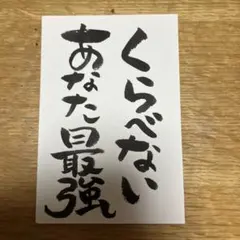 くらべない
あなた最強